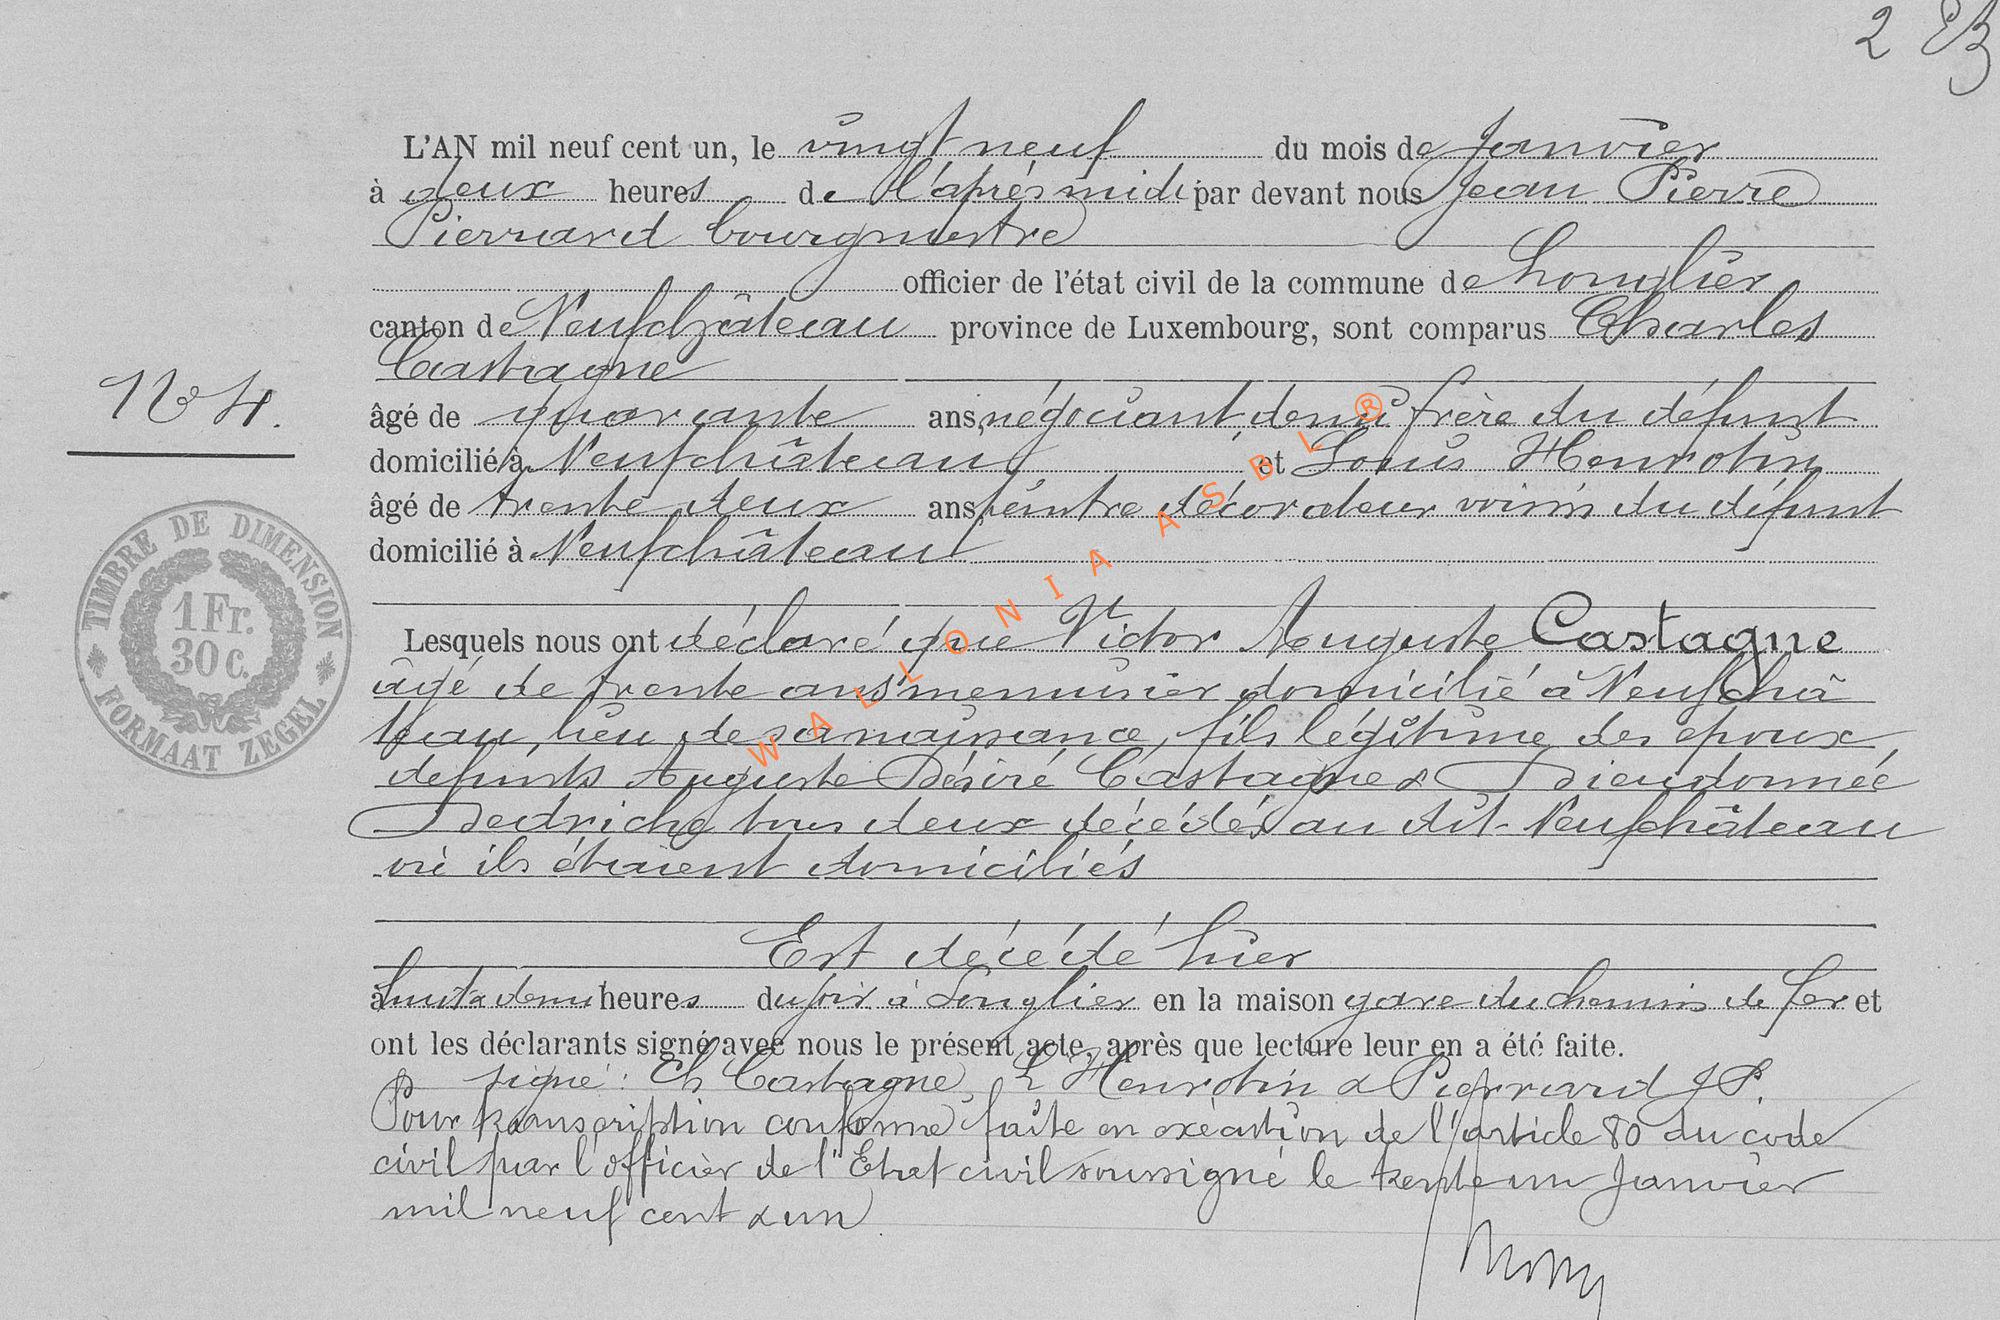 2
L'AN mil neuf cent un, le vingt neuf du mois de Janvier
à deux heures de l'après midi par devant nous Jean Pierre
Pierrard bourgmestre
officier de l'état civil de la commune de Longlier
canton de Neufchâteau province de Luxembourg, sont comparus Charles
Castagne
No 4.
âgé de quarante ans, négociant, demi frère du défunt
domicilié à Neufchâteau et Louis Henrotin
âgé de trente deux ans, peintre décorateur voisin du défunt
domicilié à Neufchâteau
TIMBRE DE DIMENSION
1 Fr.
30 c.
FORMAAT ZEGEL
WALLONIA ASBL ®
Lesquels nous ont déclaré que Victor Auguste Castagne
âgé de trente ans menuisier domicilié à Neufchâ
teau, lieu de sa naissance, fils légitime des époux
défunts Auguste Désiré Castagne & Dieudonnée
Dedriche tous deux décédés au dit Neufchâteau
où ils étaient domiciliés
Est décédé hier
à huit & demi heures du soir à Longlier en la maison gare du chemin de fer et
ont les déclarants signé avec nous le présent acte, après que lecture leur en a été faite.
signé : Ch Castagne, L Henrotin & Pierrard J P.
Pour transcription conforme faite en exécution de l'article 80 du code
civil par l'officier de l'Etat civil soussigné le trente un Janvier
mil neuf cent & un